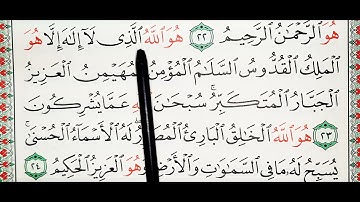 هُوَ ٱلرَّحْمَٰنُ ٱلرَّحِيمُ ٢٢ هُوَ ٱللَّهُ ٱلَّذِى لَآ إِلَٰهَ إِلَّا هُوَ
ٱلْمَلِكُ ٱلْقُدُّوسُ ٱلسَّلَٰمُ ٱلْمُؤْمِنُ ٱلْمُهَيْمِنُ ٱلْعَزِيزُ
ٱلْجَبَّارُ ٱلْمُتَكَبِّرُ ۚ سُبْحَٰنَ عَمَّا يُشْرِكُونَ
٢٣ هُوَ ٱللَّهُ ٱلْخَٰلِقُ ٱلْبَارِئُ ٱلْمُصَوِّرُ ۖ لَهُ ٱلْأَسْمَآءُ ٱلْحُسْنَىٰ ۚ
يُسَبِّحُ لَهُۥ مَا فِى ٱلسَّمَٰوَٰتِ وَٱلْأَرْضِ ۖ وَهُوَ ٱلْعَزِيزُ ٱلْحَكِيمُ ٢٤